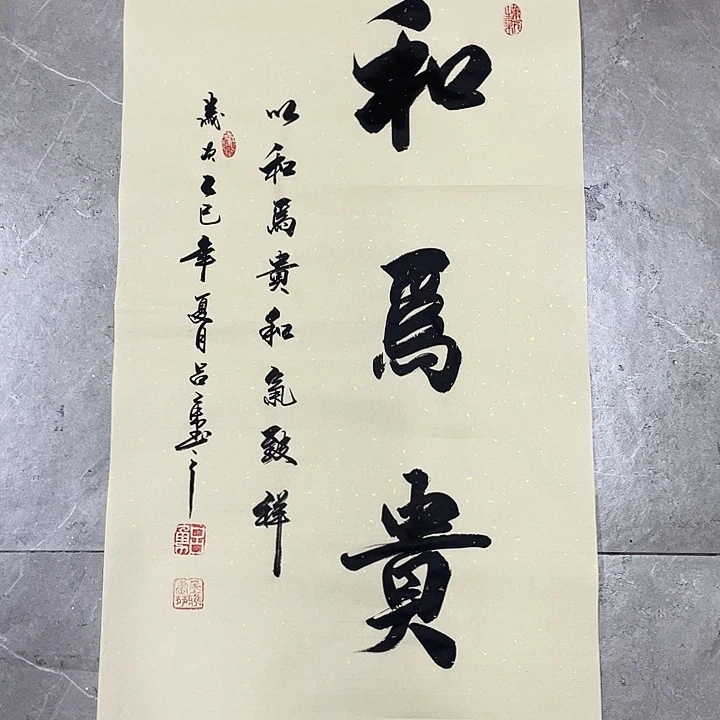 和為貴
以和為貴和氣致祥
歲次乙巳年夏月吕